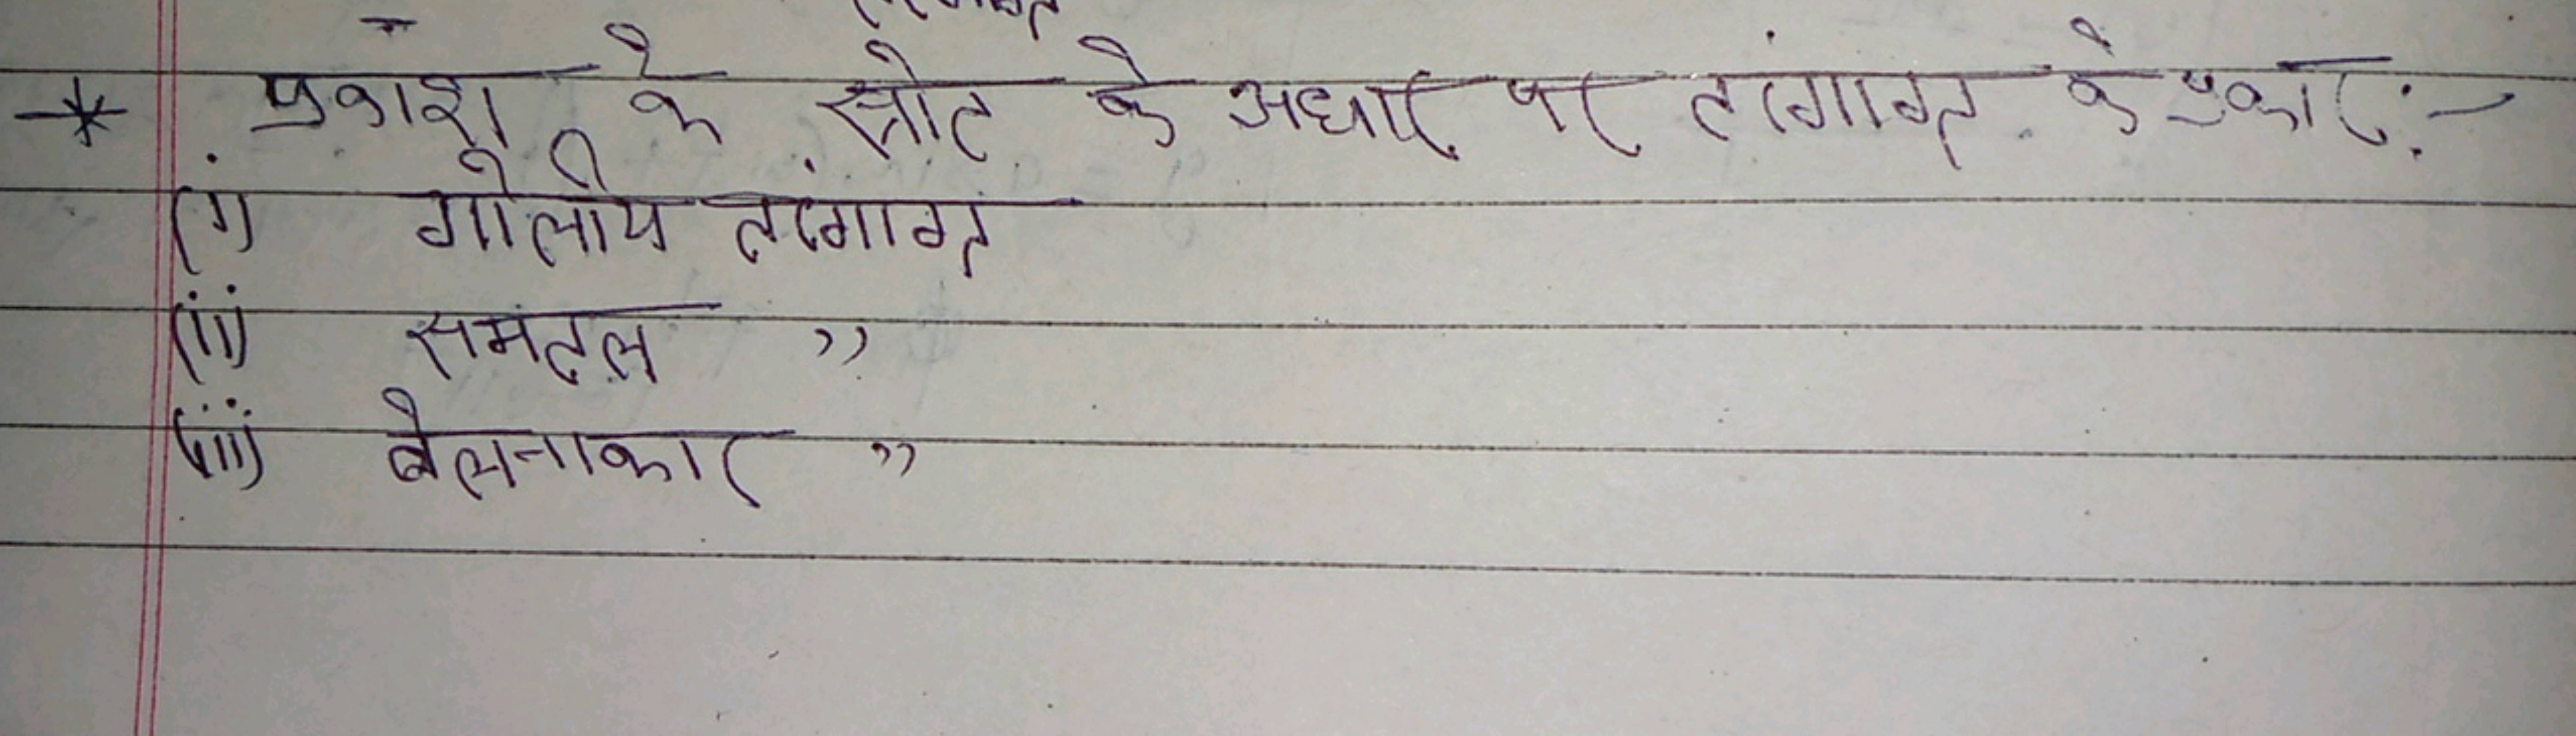 * प्रकाश के स्रोत के अधार पर तरंगाग्र के प्रकार :-
(i) गोलीय तरंगाग्र
(ii) समतल ,,
(iii) बेलनाकार ,,